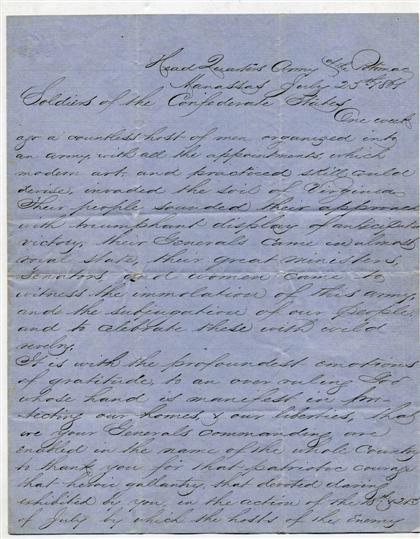 Head Quarters Army of the Potomac
Manassas July 25th 1861
Soldiers of the Confederate States
One week
ago a countless host of men organized into
an army, with all the appointments, which
modern art and practiced skill could
devise, invaded the soil of Virginia
Their people sounded their approach
with triumphant display of anticipated
victory, their Generals came in almost
royal state, their great ministers,
Senators, and women came to
witness the immolation of this army
and the subjugation of our people,
and to celebrate these with wild
revelry.
It is with the profoundest emotions
of gratitude, to an over ruling God
whose hand is manifest in pro-
tecting our homes, & our liberties, that
we your Generals commanding are
enabled in the name of the whole country
to thank you for that patriotic courage
that heroic gallantry, that devoted daring
exhibited by you, in the action of the 18th & 21st
of July by which the hosts of the enemy